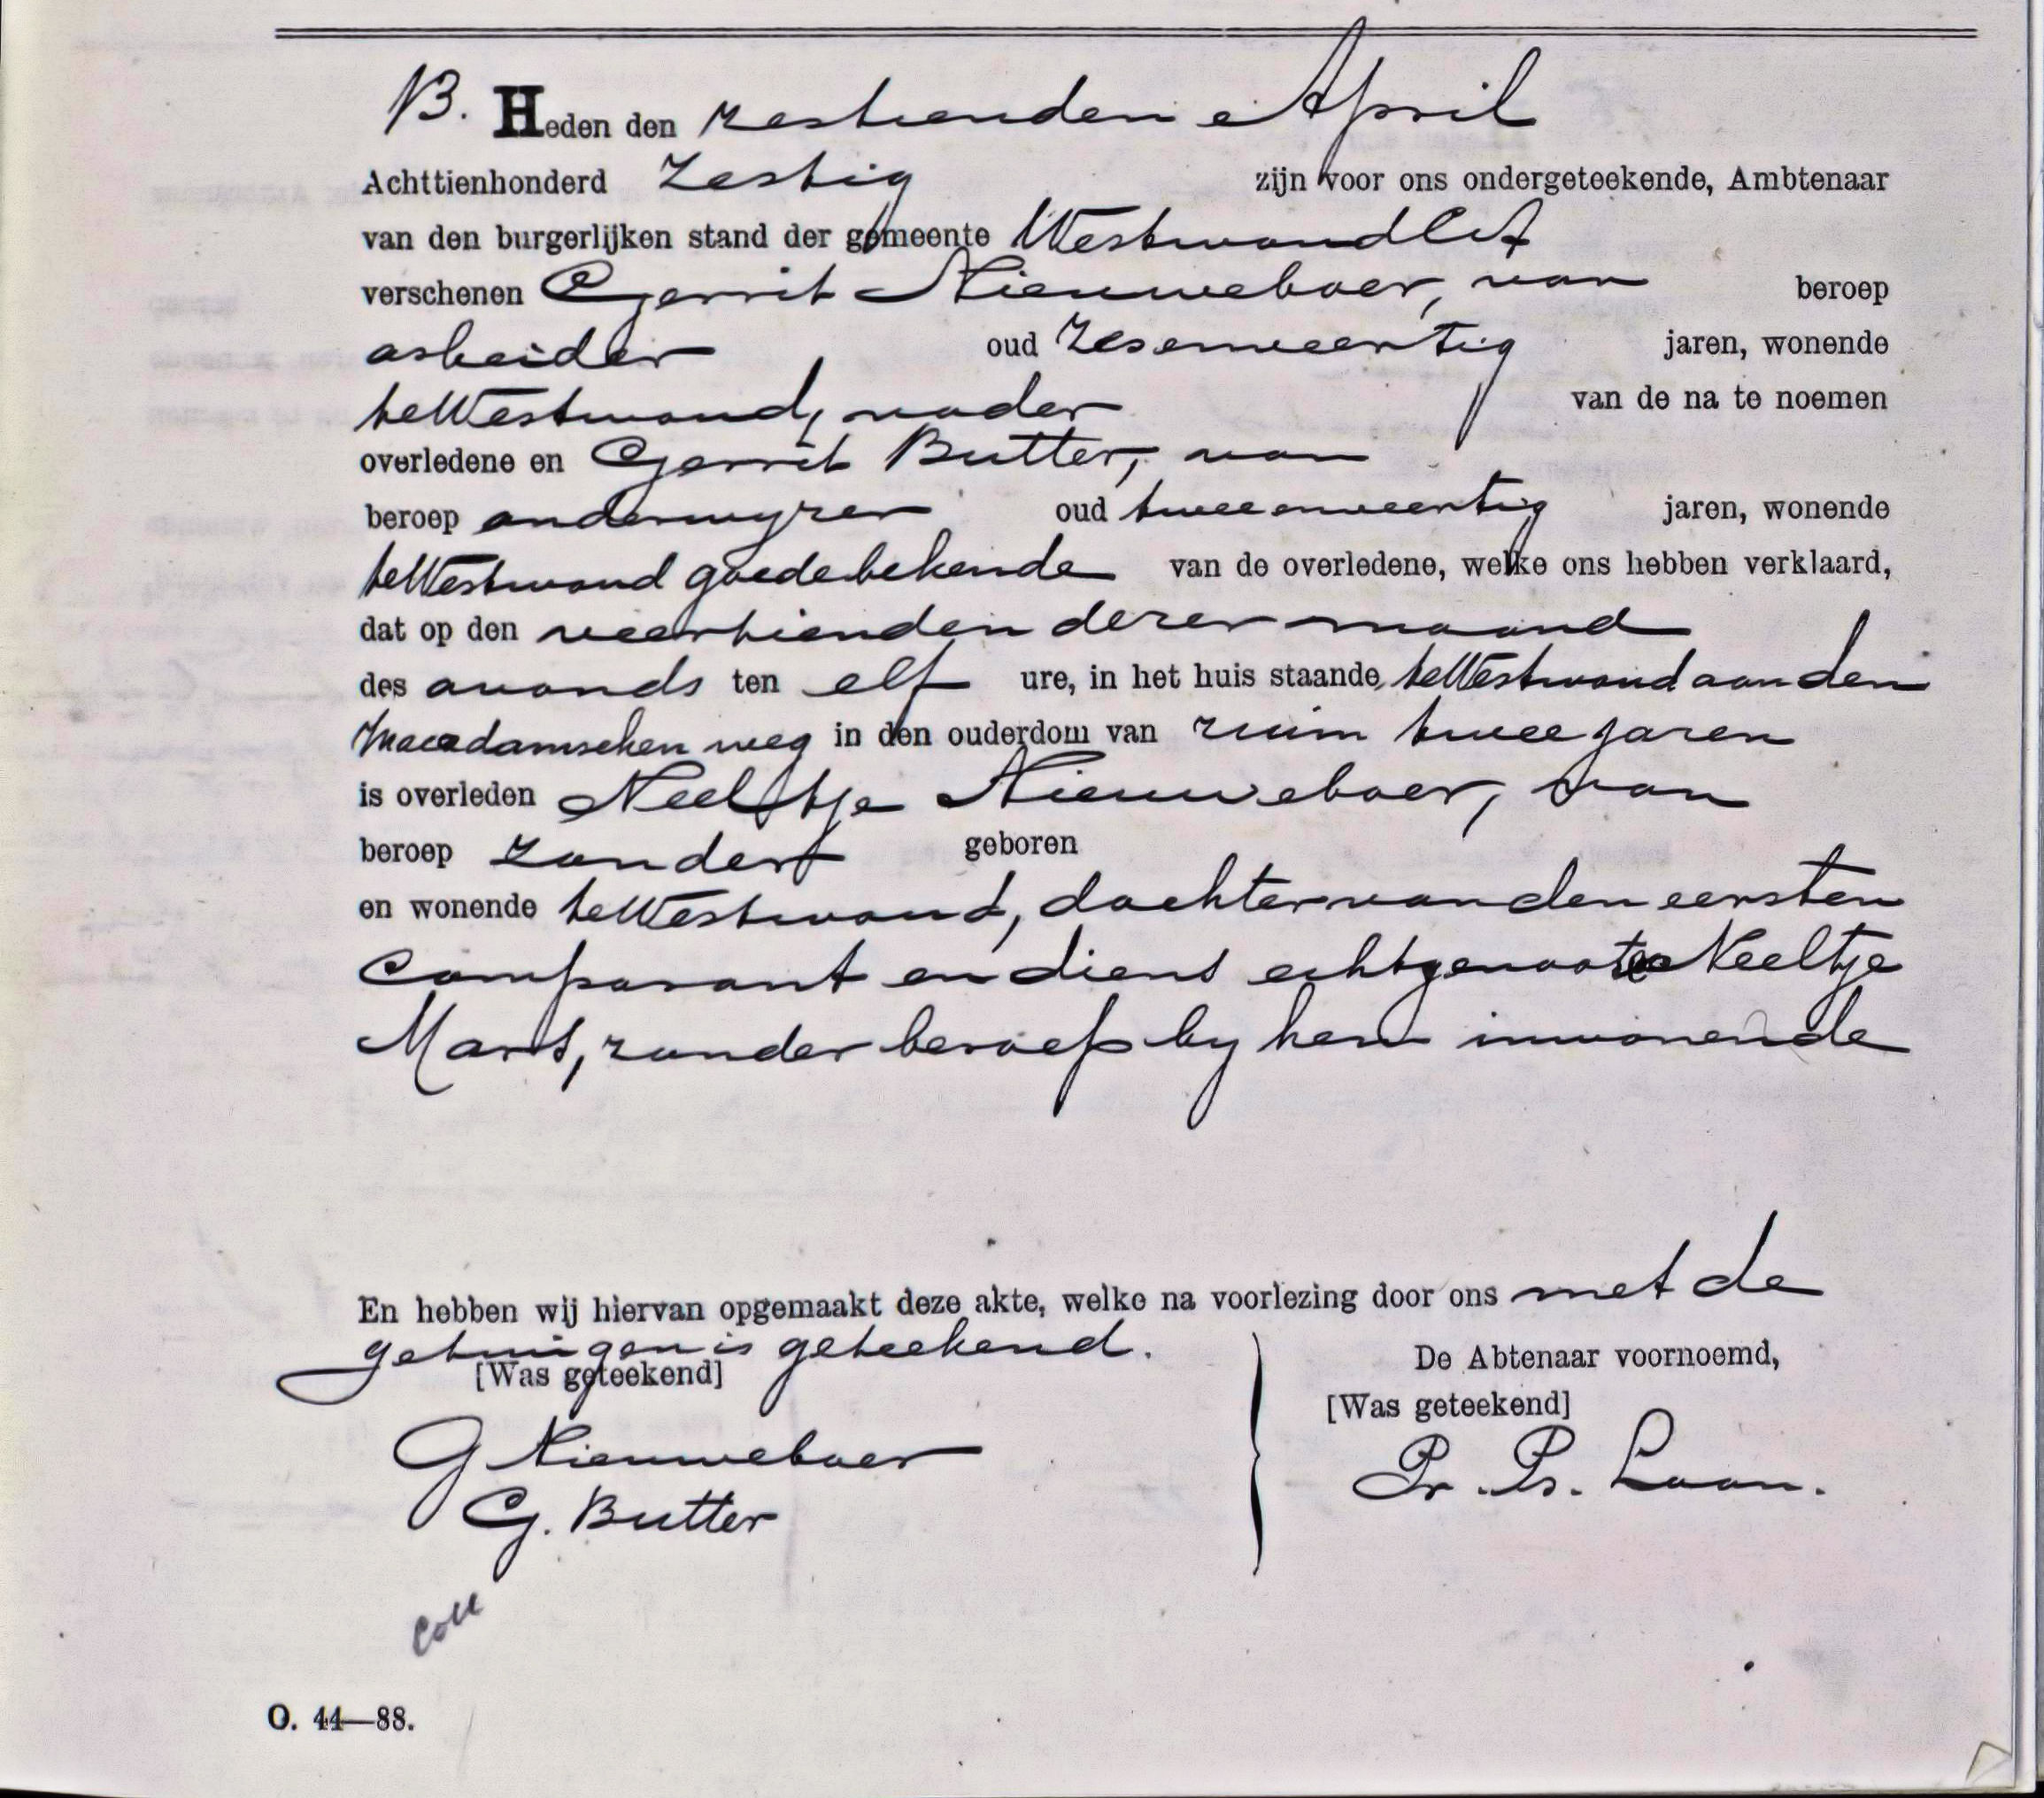 13. Heden den zestienden April
Achttienhonderd Zestig zijn voor ons ondergeteekende, Ambtenaar
van den burgerlijken stand der gemeente Westwoud
verschenen Gerrit Nieuweboer, van beroep
arbeider oud Zesenveertig jaren, wonende
te Westwoud, vader van de na te noemen
overledene en Gerrit Butter, van
beroep onderwyzer oud tweeenveertig jaren, wonende
te Westwoud goede bekende van de overledene, welke ons hebben verklaard,
dat op den veertienden dezer maand
des avonds ten elf ure, in het huis staande, te Westwoud aan den
Macadamschen weg in den ouderdom van ruim twee jaren
is overleden Neeltje Nieuweboer, van
beroep zonder geboren
en wonende te Westwoud, dochter van den eersten
Comparant en diens echtgenoote Neeltje
zonder beroep by hem inwonende
En hebben wij hiervan opgemaakt deze akte, welke na voorlezing door ons met de
getuigen is geteekend.
[Was geteekend] De Abtenaar voornoemd,
[Was geteekend]
G Nieuweboer
G. Butter
Coll
O. 44—88.